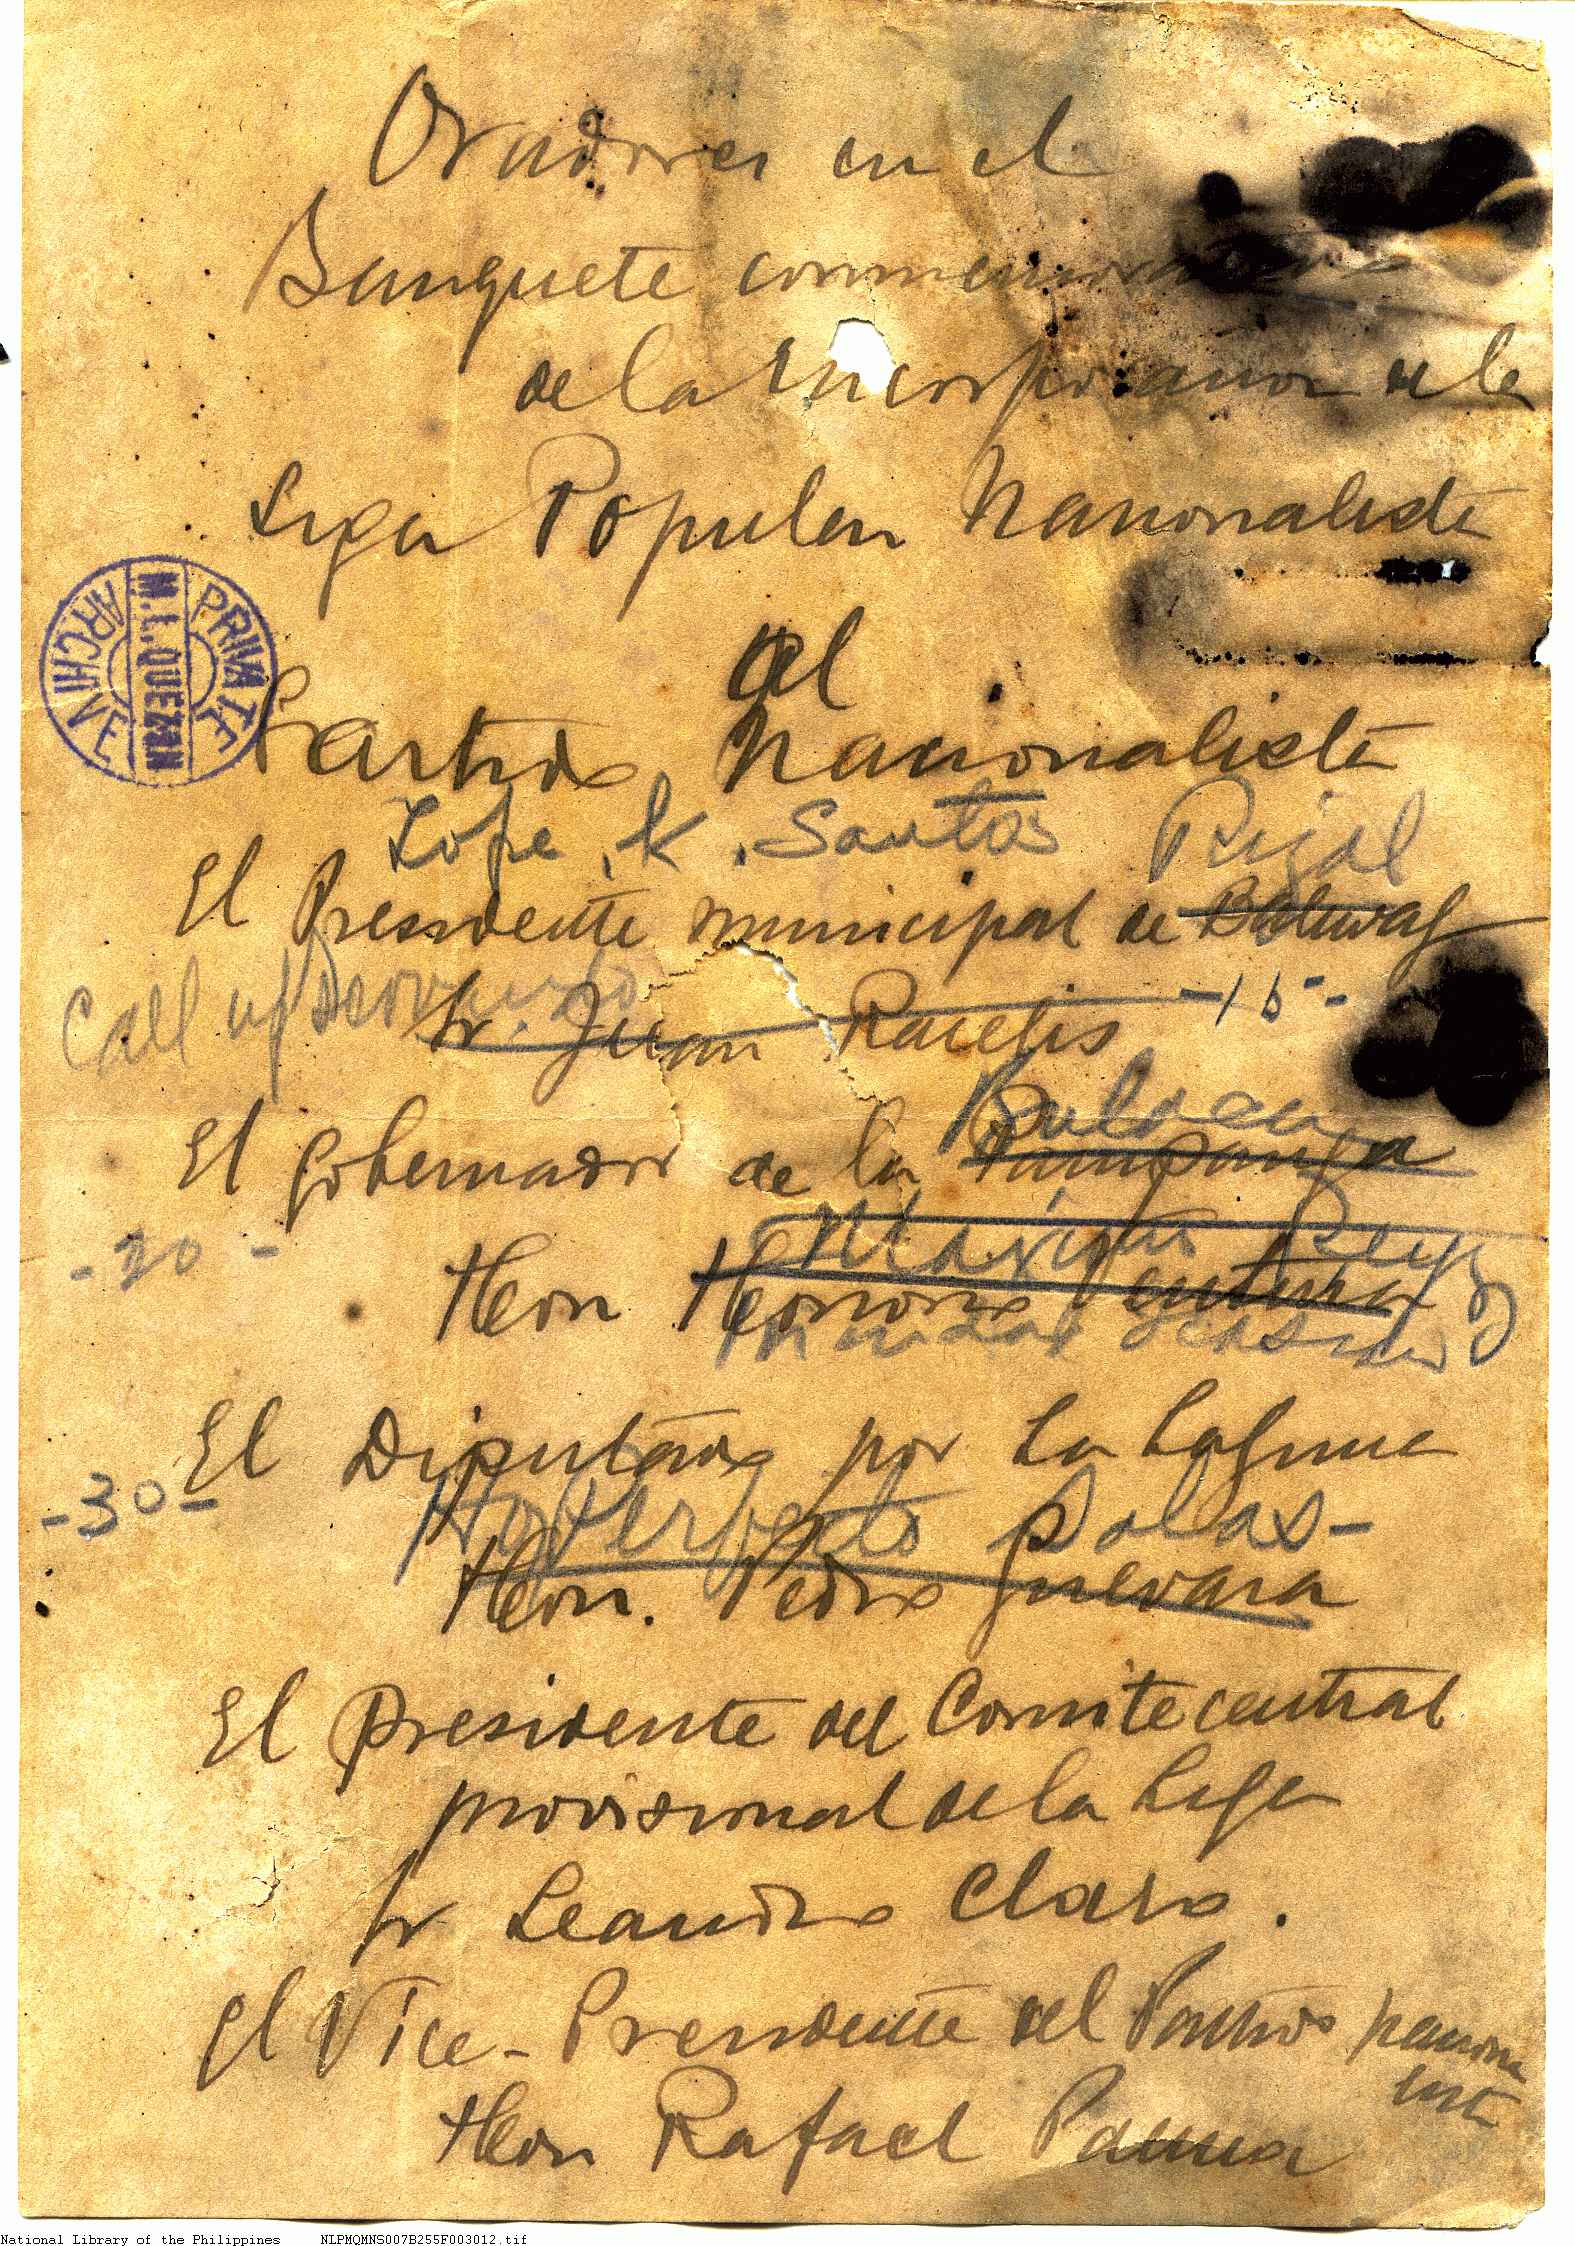 Oradores en el
Banquete conmemorativo
de la incorporacion de la
Liga Popular Nacionalista
al
Partido Nacionalista
Lope K. Santos Rizal
El Presidente municipal de Baliwag
Call up
Sr. Juan -15-
Bulacan
El gobernador de la Pampanga
Reyes
-20-
Hon Honorio Ventura
El Diputado por La Laguna
-30-
Salas-
Hon. Pedro Guevara
El Presidente del Comite central
provisional de la Liga
Sr Leandro Claro.
El Vice-Presidente del Partido naciona
lista
Hon Rafael Palma
PRIVATE
M. L. QUEZON
ARCHIVE
National Library of the Philippines NLPMQMNS007B255F003012.tif